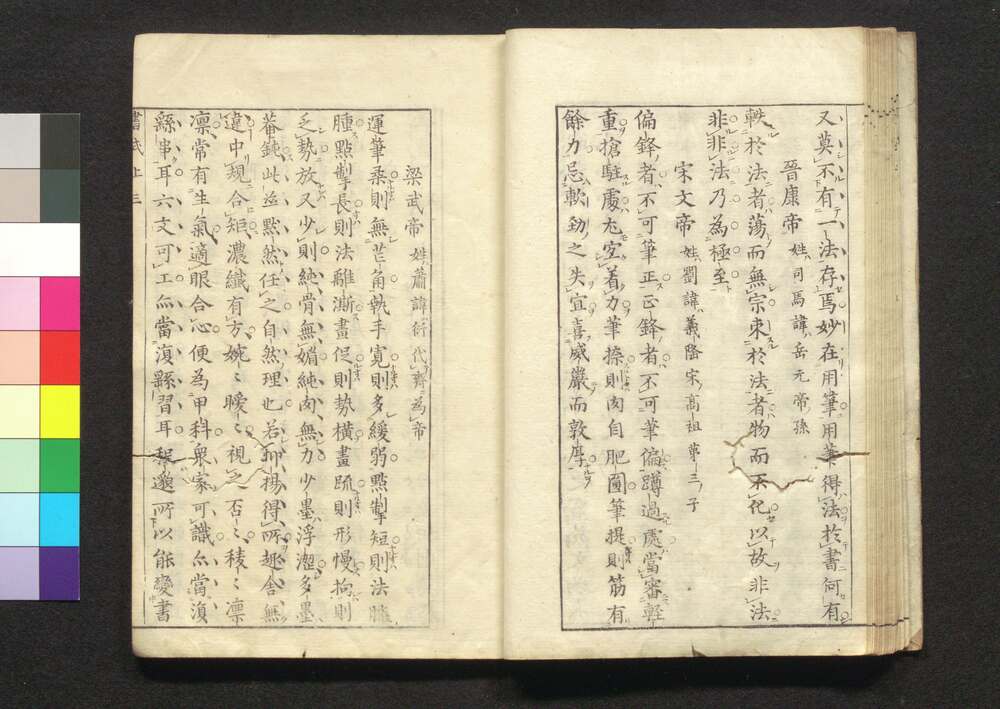 又莫不有一法存焉妙在用筆用筆得法於書何有
晉康帝 姓司馬諱岳元帝孫
軼於法者蕩而無宗束於法者物而不化以故非法
非非法乃為極至
宋文帝 姓劉諱義隆宋高祖第三子
偏鋒者不可筆正正鋒者不可筆偏蹲過處當審軽
重搶駐處尤宐着力筆捺則肉自肥圓筆提則筋有
餘力忌軟劲之失宜喜威嚴而敦厚
梁武帝 姓蕭諱衍代齊為帝
運筆柔則無芒角執手寬則多緩弱點掣短則法臃
腫點掣長則法離澌畫促則勢橫畫疏則形慢拘則
乏勢放又少則純骨無媚純肉無力少墨浮澀多墨
菴鈍此並黙然任之自然理也若抑揚得所趣舍無
違中規合矩濃纖有方婉〻曖〻視之不〻稜〻凜
凜常有生氣適眼合心便為甲科衆家可識亦當湏
緜串耳六文可工亦當湏緜習耳程邈所以能變書
書式 上 三